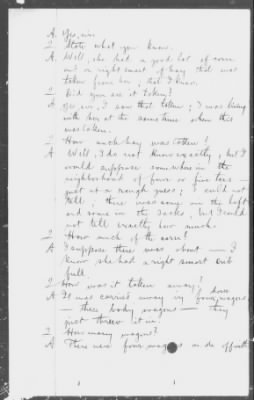 A. Yes, sir.
Q. State what you know.
A. Well, she had a good lot of corn
and a right smart of hay that was
taken from her; that I know.
Q. Did you see it taken?
A. Yes, sir, I saw that taken; I was living
with her at the same time when this
was taken.
Q. How much hay was taken?
A. Well, I do not know exactly, but I
would suppose somewhere in the
neighborhood of four or five tons —
just at a rough guess; I could not
tell; there was some in the loft
and some in the stacks, but I could
not tell exactly how much.
Q. How much of the corn?
A. I suppose there was about — I
know she had a right smart crib
full.
Q. How was it taken away?
A. It was carried away in four-horse wagons
— these body wagons — they
just threw it in.
Q. How many wagons?
A. There were four wagons